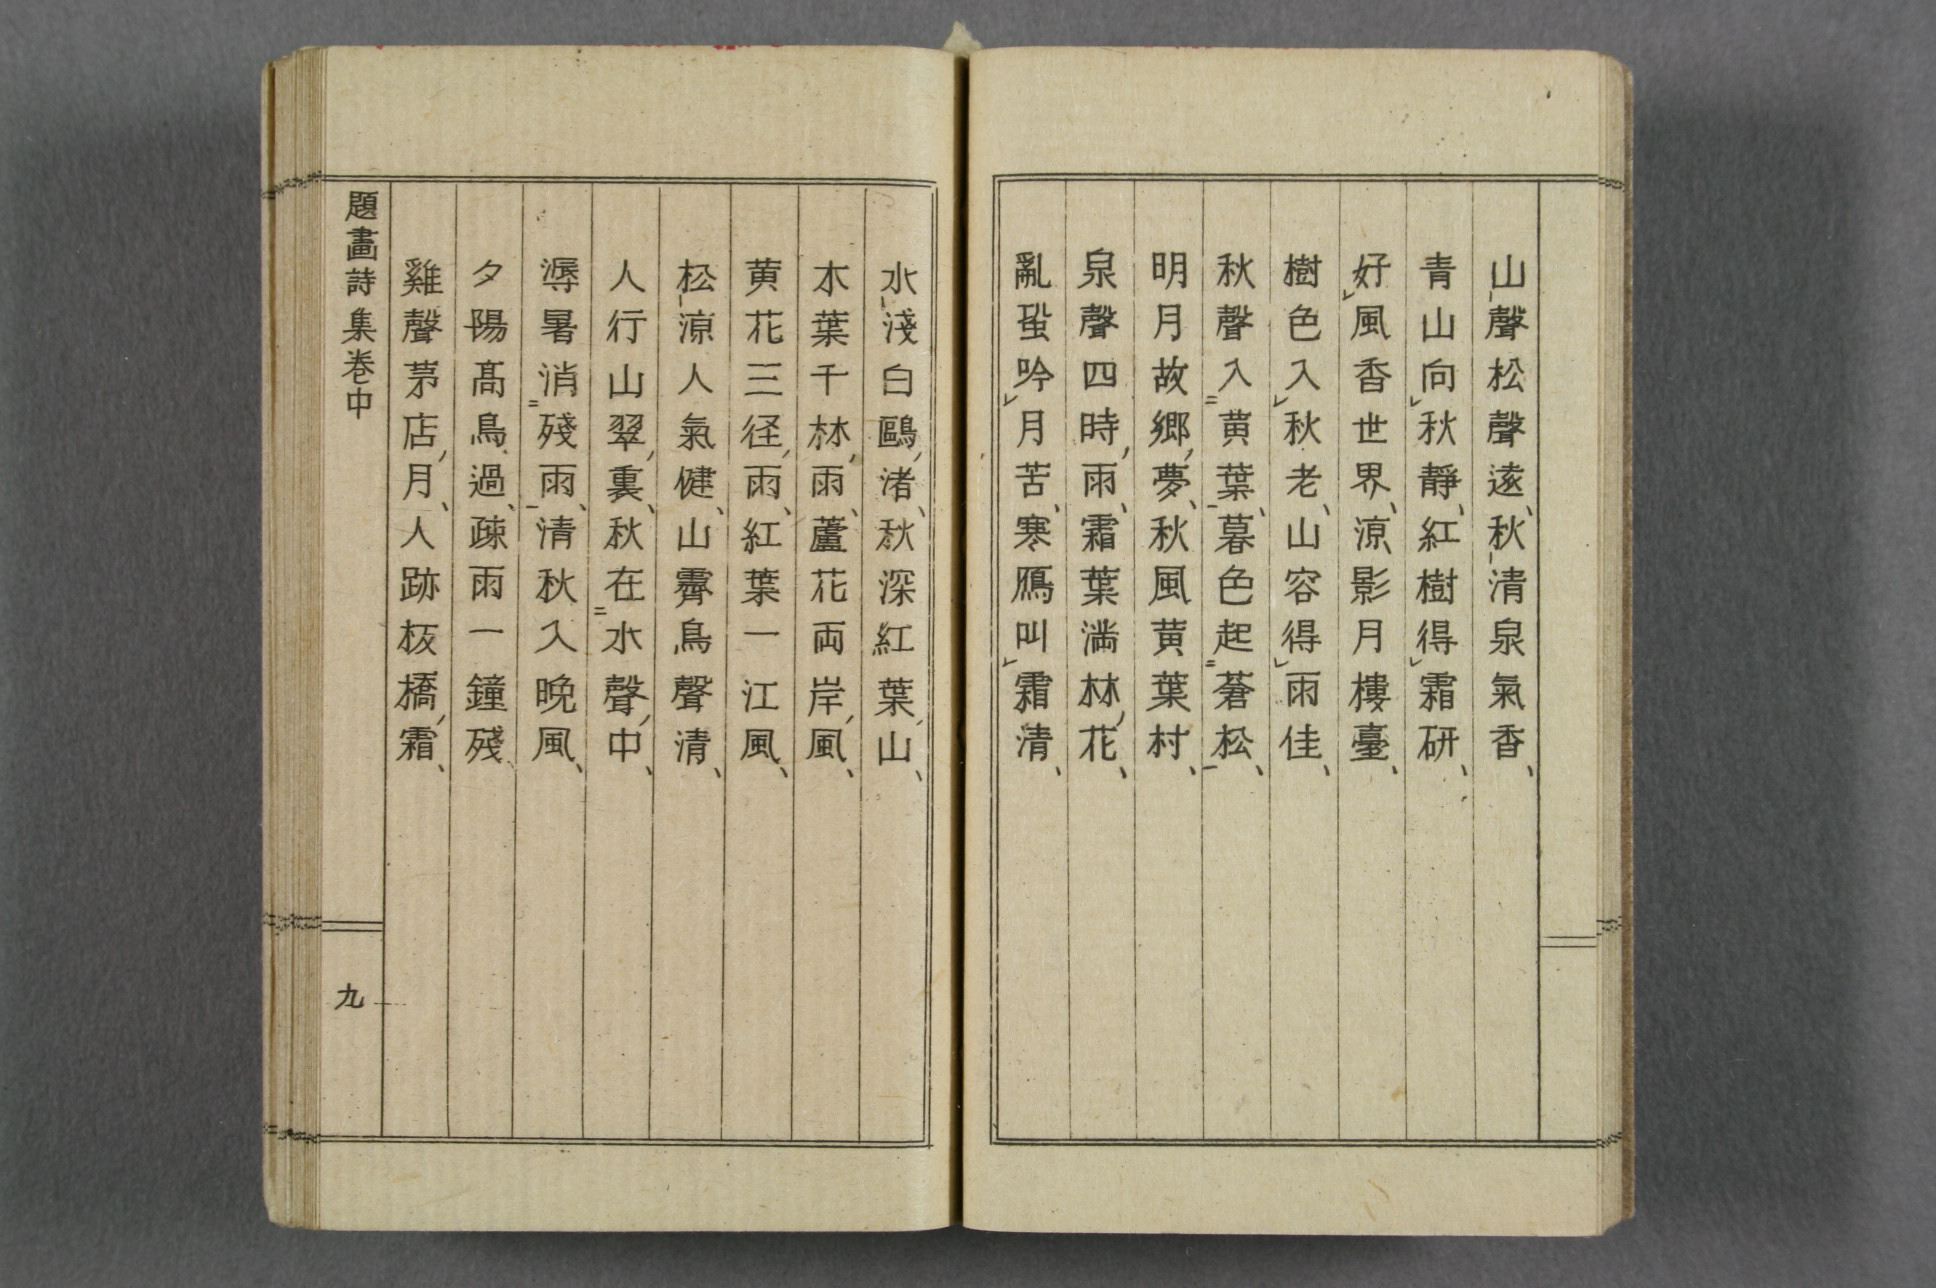 山聲松聲遠、秋清泉氣香、
青山向秋靜、紅樹得霜研、
好風香世界、涼影月樓臺、
樹色入秋老、山容得雨佳、
秋聲入黄葉、暮色起蒼松、
明月故鄉夢、秋風黄葉村、
泉聲四時雨、霜葉滿林花、
亂蛩吟月苦、寒鴈叫霜清、
水淺白鷗渚、秋深紅葉山、
木葉千林雨、蘆花両岸風、
黄花三径雨、紅葉一江風、
松涼人氣健、山霽鳥聲清、
人行山翠裏、秋在水聲中、
溽暑消殘雨、清秋入晩風、
夕陽高鳥過、疎雨一鐘殘、
雞聲茅店月、人跡板橋霜、
題畫詩集卷中
九